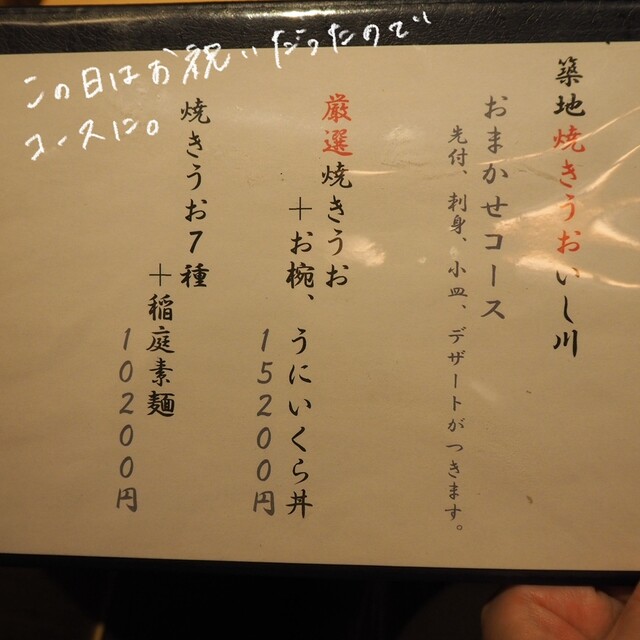 この日はお祝いだったので
コースに。
築地焼きうおいし川
おまかせコース
先付、刺身、小皿、デザートがつきます。
厳選焼きうお
＋お椀、うにいくら丼
15200円
焼きうお7種
＋稲庭素麺
10200円